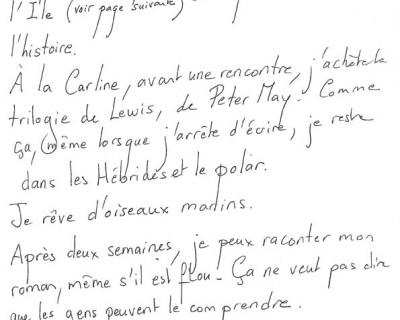 l'Ile (voir page suivante)
l'histoire.
À la Carline, avant une rencontre, j'achète la
trilogie de Lewis, de Peter May. Comme
ça, même lorsque j'arrête d'écrire, je reste
dans les Hébrides et le polar.
Je rêve d'oiseaux marins.
Après deux semaines, je peux raconter mon
roman, même s'il est flou. Ça ne veut pas dire
que les gens peuvent le comprendre.